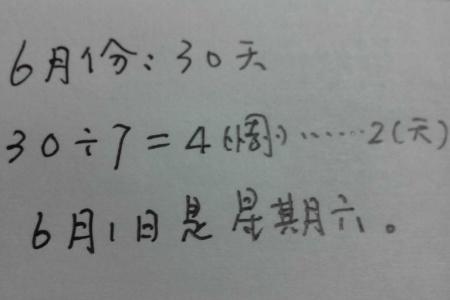 6月份：30天
30÷7=4(周)……2(天)
6月1日是星期六。